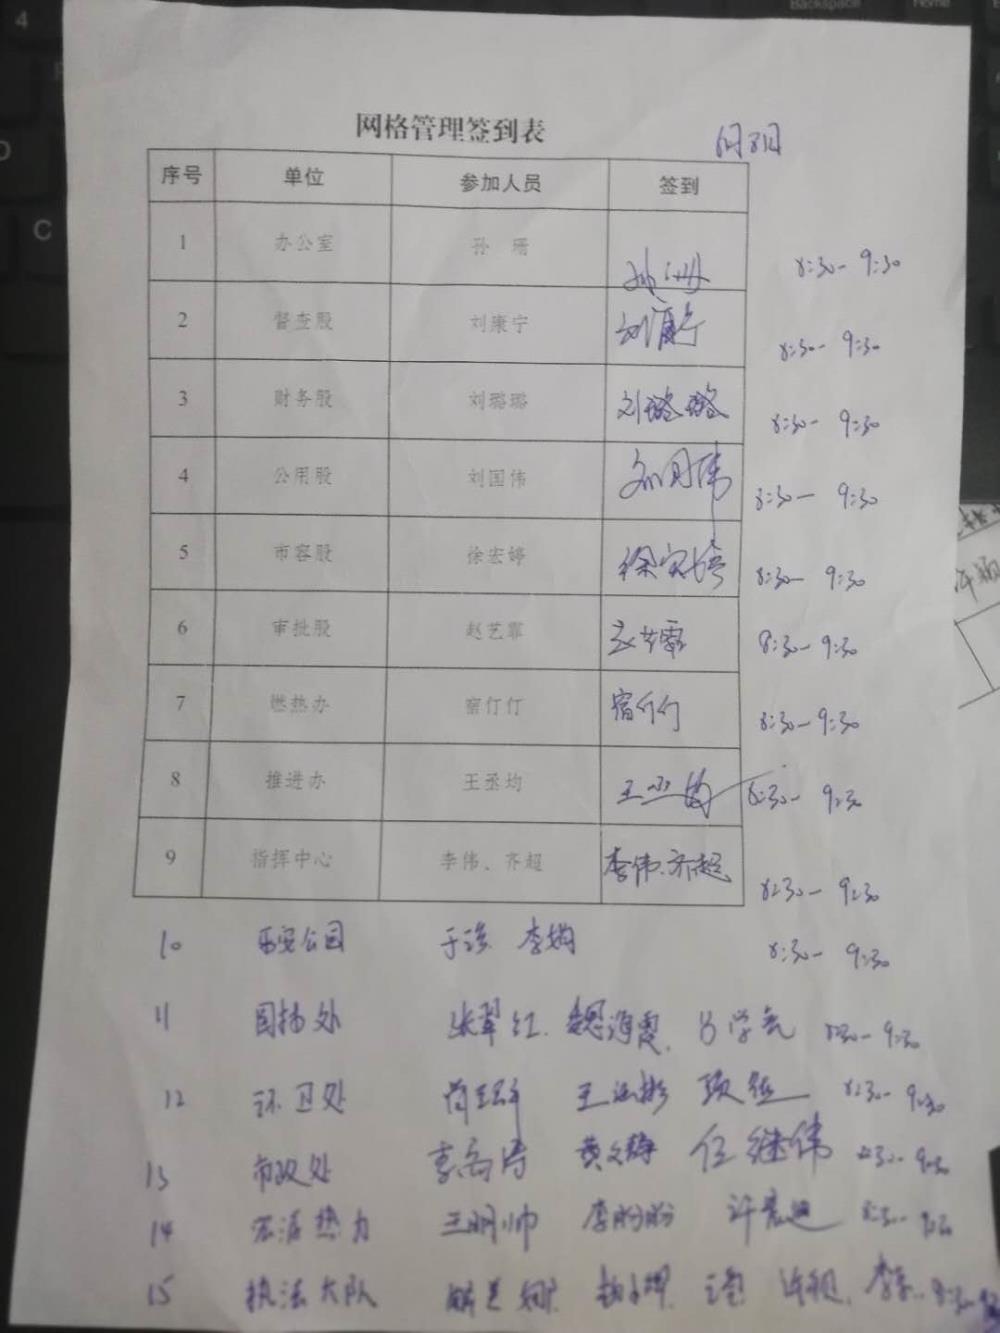 Backspace
Home
4
C
网格管理签到表
6月8日
序号 单位 参加人员 签到
1 办公室 孙 珊 孙珊 8:30-9:30
2 督查股 刘康宁 刘康宁 8:30-9:30
3 财务股 刘璐璐 刘璐璐 8:30-9:30
4 公用股 刘国伟 刘国伟 8:30-9:30
5 市容股 徐宏婷 徐宏婷 8:30-9:30
6 审批股 赵艺霏 赵艺霏 8:30-9:30
7 燃热办 宿仃仃 8:30-9:30
8 推进办 王丞均 王丞均 8:30-9:30
9 指挥中心 李伟、齐超 李伟、齐超 8:30-9:30
10 公园 李娟 8:30-9:30
11 园林处 张翠红 魏海霞 吕学亮 8:30-9:30
12 环卫处 8:30-9:30
13 市政处 黄文静 任继伟 8:30-9:30
14 宏源热力 王明帅 李盼盼 8:30-9:30
15 执法大队 8:30-